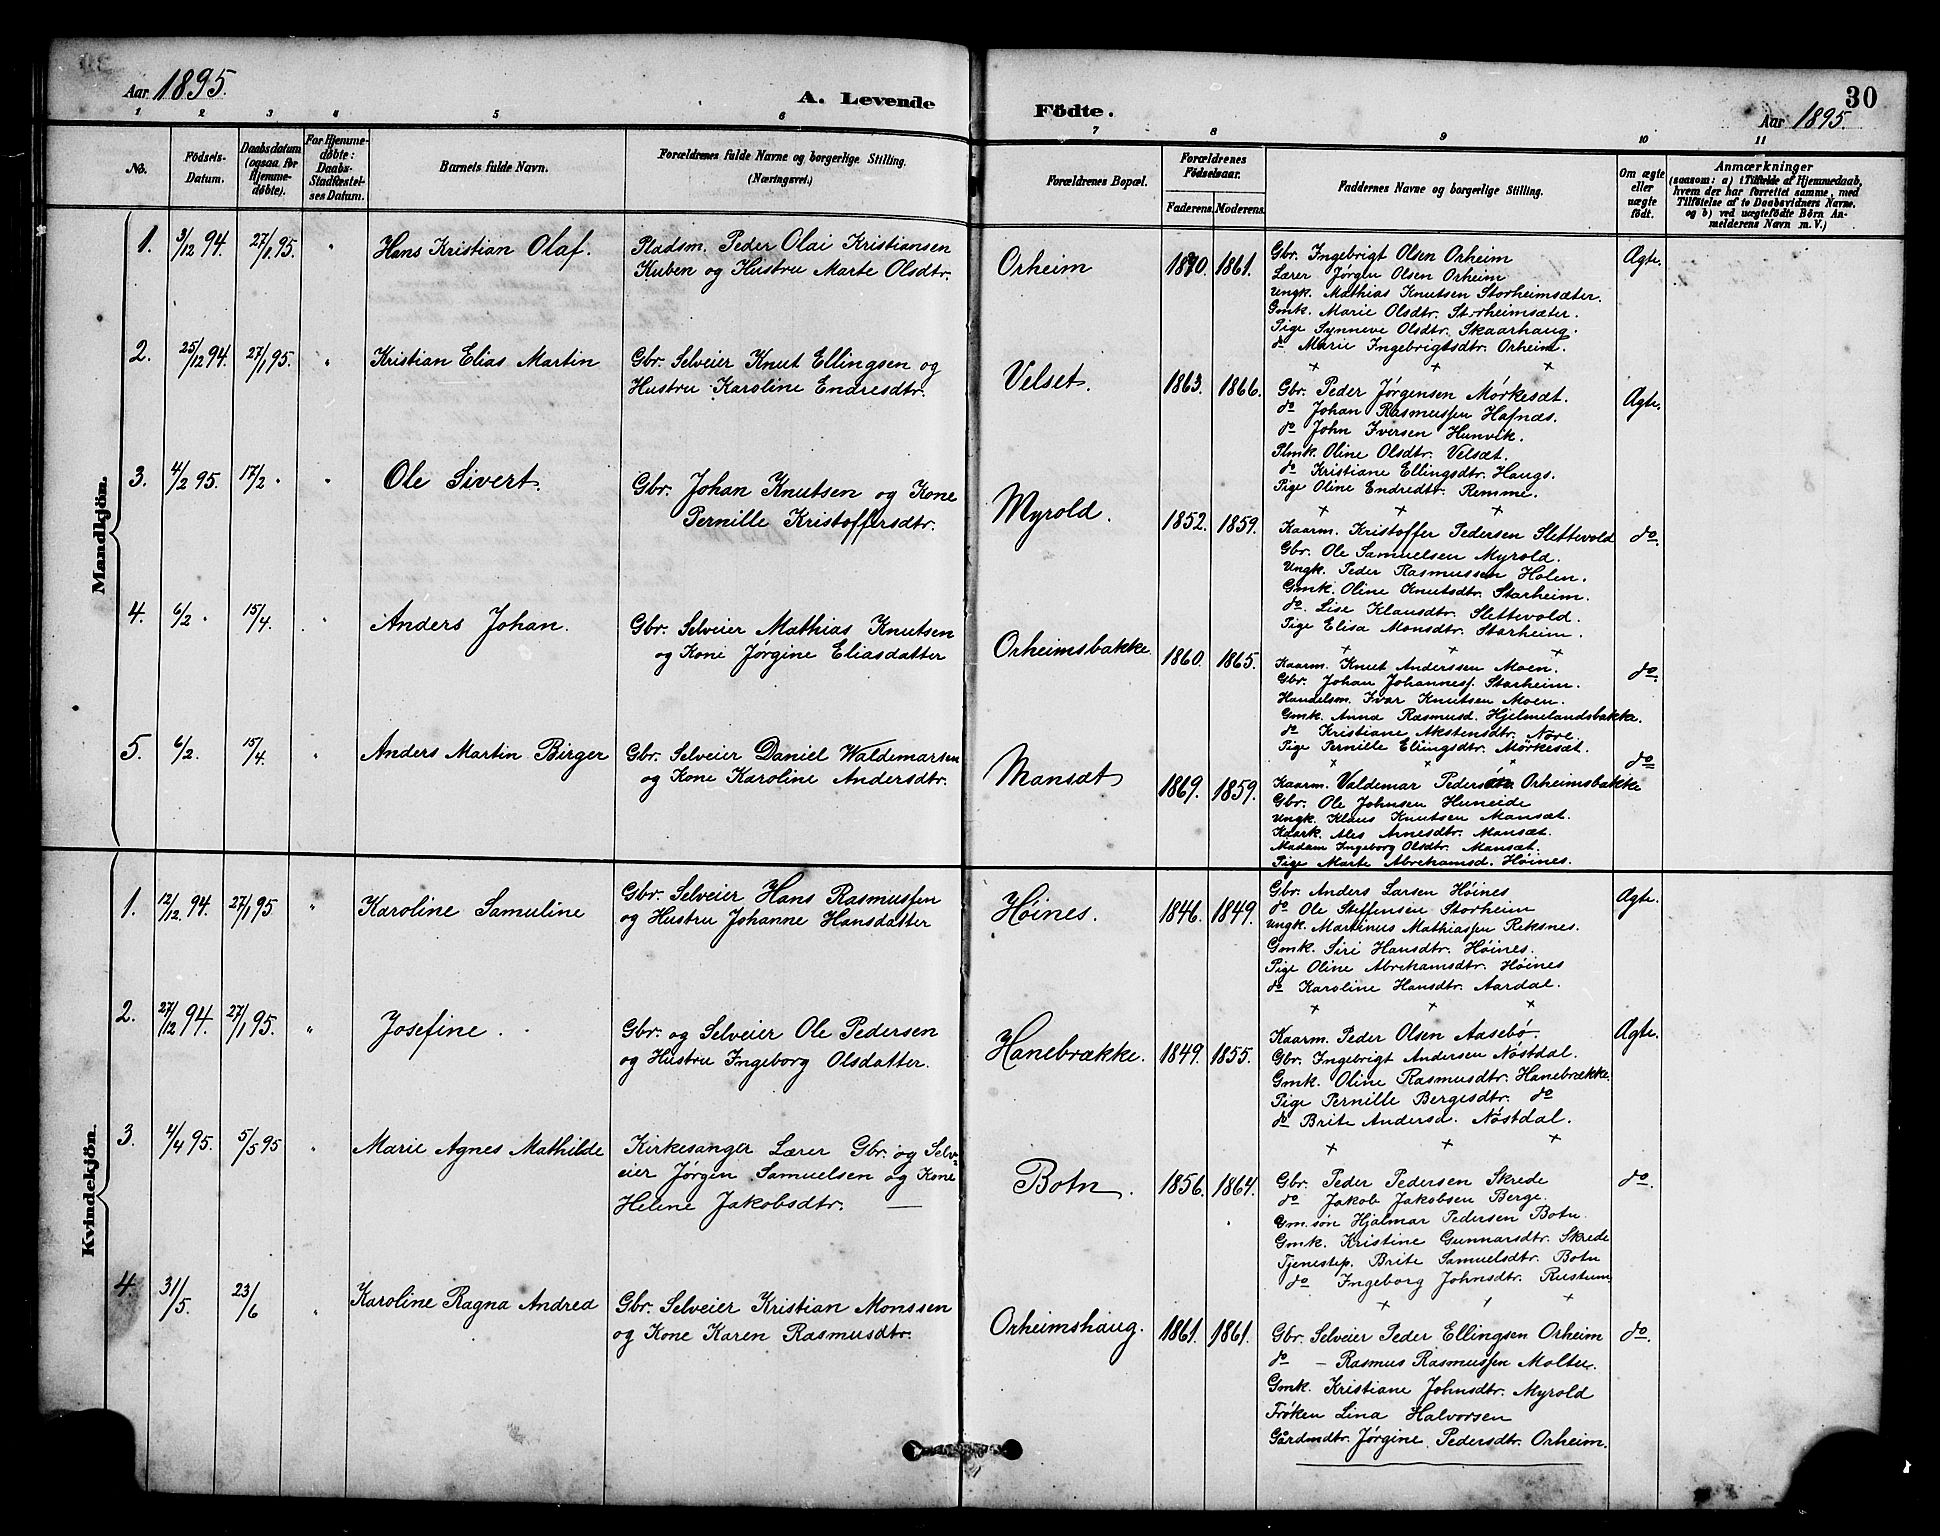 Aar 1895.
A. Levende Födte.
30
Aar 1895.
1 2 3 4 5 6 7 8 9 10 11
No.
Födsels-Datum.
Daabsdatum (ogsaa for Hjemme-døbte).
For Hjemme-døbte: Daabs-Stadfæstel-ses Datum.
Barnets fulde Navn.
Forældrenes fulde Navne og borgerlige Stilling.
(Næringsvei.)
Forældrenes Bopæl.
Forældrenes Födselsaar.
Faderens. Moderens.
Faddernes Navne og borgerlige Stilling.
Om ægte eller uægte födt.
Anmærkninger
(saasom: a) i Tilfælde af Hjemmedaab, hvem der har forrettet samme, med Tilföielse af to Daabsvidners Navne. og b) ved uægtefödte Börn An-melderens Navn m. V.)
Mandkjön.
1. 3/12 94. 27/1 95. " Hans Kristian Olaf.
Pladsm. Peder Olai Kristiansen
Kuben og Hustru Marte Olsdtr.
Orheim 1870. 1861.
Gbr. Ingebrigt Olsen Orheim
Lærer Jørgen Olsen Orheim
Ungk. Mathias Knutsen Storheimsæter.
Gmk. Marie Olsdtr. Storheimsæter.
Pige Synneve Olsdtr. Skaarhaug.
do Marie Ingebrigtsdtr. Orheim.
Ægte.
+ + +
2. 25/12 94. 27/1 95. " Kristian Elias Martin
Gbr. Selveier Knut Ellingsen og
Hustru Karoline Endresdtr.
Velset. 1863. 1866.
Gbr. Peder Jørgensen Mørkesæt.
do Johan Rasmussen Hafnæs.
do John Iversen Hunvik.
Plmk. Oline Olsdtr. Velsæt.
do Kristiane Ellingsdtr. Haugs.
Pige Oline Endredtr. Remme.
Ægte.
+ + +
3. 4/2 95. 17/2 " " Ole Sivert.
Gbr. Johan Knutsen og Kone
Pernille Kristoffersdtr.
Myrold. 1852. 1859.
Kaarm. Kristoffer Pedersen Slettevold
Gbr. Ole Samuelsen Myrold.
Ungk. Peder Rasmussen Holen.
Gmk. Oline Knutsdtr. Starheim.
do. Lise Klausdtr. Slettevold.
Pige Elisa Monsdtr. Starheim.
do.
+ + +
4. 6/2 " 15/4. " Anders Johan.
Gbr. Selveier Mathias Knutsen
og Kone Jørgine Eliasdatter
Orheimsbakke 1860. 1865.
Kaarm. Knut Anderssen Moen.
Gbr. Johan Johannesf. Starheim.
Handelsm. Ivar Knutsen Moen.
Gmk. Anna Rasmusd. Hjelmelandsbakke.
do Kristiane Akstensdtr. Nore.
Pige Pernille Elingsdtr. Mørkesæt.
do.
+ + +
5. 6/2. 15/4. " Anders Martin Birger
Gbr. Selveier Daniel Waldemarsen
og Kone Karoline Andersdtr.
Mansæt 1869. 1859.
Kaarm. Valdemar Pedersen Orheimsbakke
Gbr. Ole Johnsen Huneide
Ungk. Klaus Knutsen Mansæt.
Kaark. Ales Arnesdtr. Mansæt.
Madam Ingeborg Olsdtr. Mansæt.
Pige Marte Abrahamsd. Höines.
do
Kvindekjön.
1. 12/12. 94. 27/1 95 " Karoline Samuline
Gbr. Selveier Hans Rasmussen
og Hustru Johanne Hansdatter
Höines. 1846. 1849.
Gbr. Anders Larsen Höines
do Ole Steffensen Storheim
Ungk. Martinus Mathiassen Reksnes.
Gmk. Siri Hansdtr. Höines.
Pige Oline Abrahamsdtr. Höines
do Karoline Hansdtr. Aardal.
Ægte.
+ + +
2. 27/12 94. 27/1 95. " Josefine.
Gbr. og Selveier Ole Pedersen
og Hustru Ingeborg Olsdatter.
Hanebrække. 1849. 1855.
Kaarm. Peder Olsen Aasebø.
Gbr. Ingebrigt Andersen Nöstdal.
Gmk. Oline Rasmusdtr. Hanebrække.
Pige Pernille Bergesdtr. do
do Brite Andersd. Nöstdal.
Ægte.
+ + +
3. 4/4 95. 5/5 95 " Marie Agnes Mathilde
Kirkesanger Lærer Gbr. og Selv-
eier Jørgen Samuelsen og Kone
Helene Jakobsdtr. —
Botn. 1856. 1864.
Gbr. Peder Pedersen Skrede
do Jakob Jakobsen Berge.
Gm.søn Hjalmar Pedersen Botn.
Gmk. Kristine Gunnarsdtr. Skrede
Tjenestep. Brite Samuelsdtr. Botn
do Ingeborg Johnsdtr. Rustum
do.
+ + +
4. 31/5. 23/6 " Karoline Ragna Andrea
Gbr. Selveier Kristian Monssen
og Kone Karen Rasmusdtr.
Orheimshaug. 1861. 1861.
Gbr. Selveier Peder Ellingsen Orheim
do — Rasmus Rasmussen Moltu.
Gmk. Kristiane Johnsdtr. Myrold
Frøken Lina Halvorsen
Gårdmdtr. Jørgine Pedersdtr. Orheim.
do.